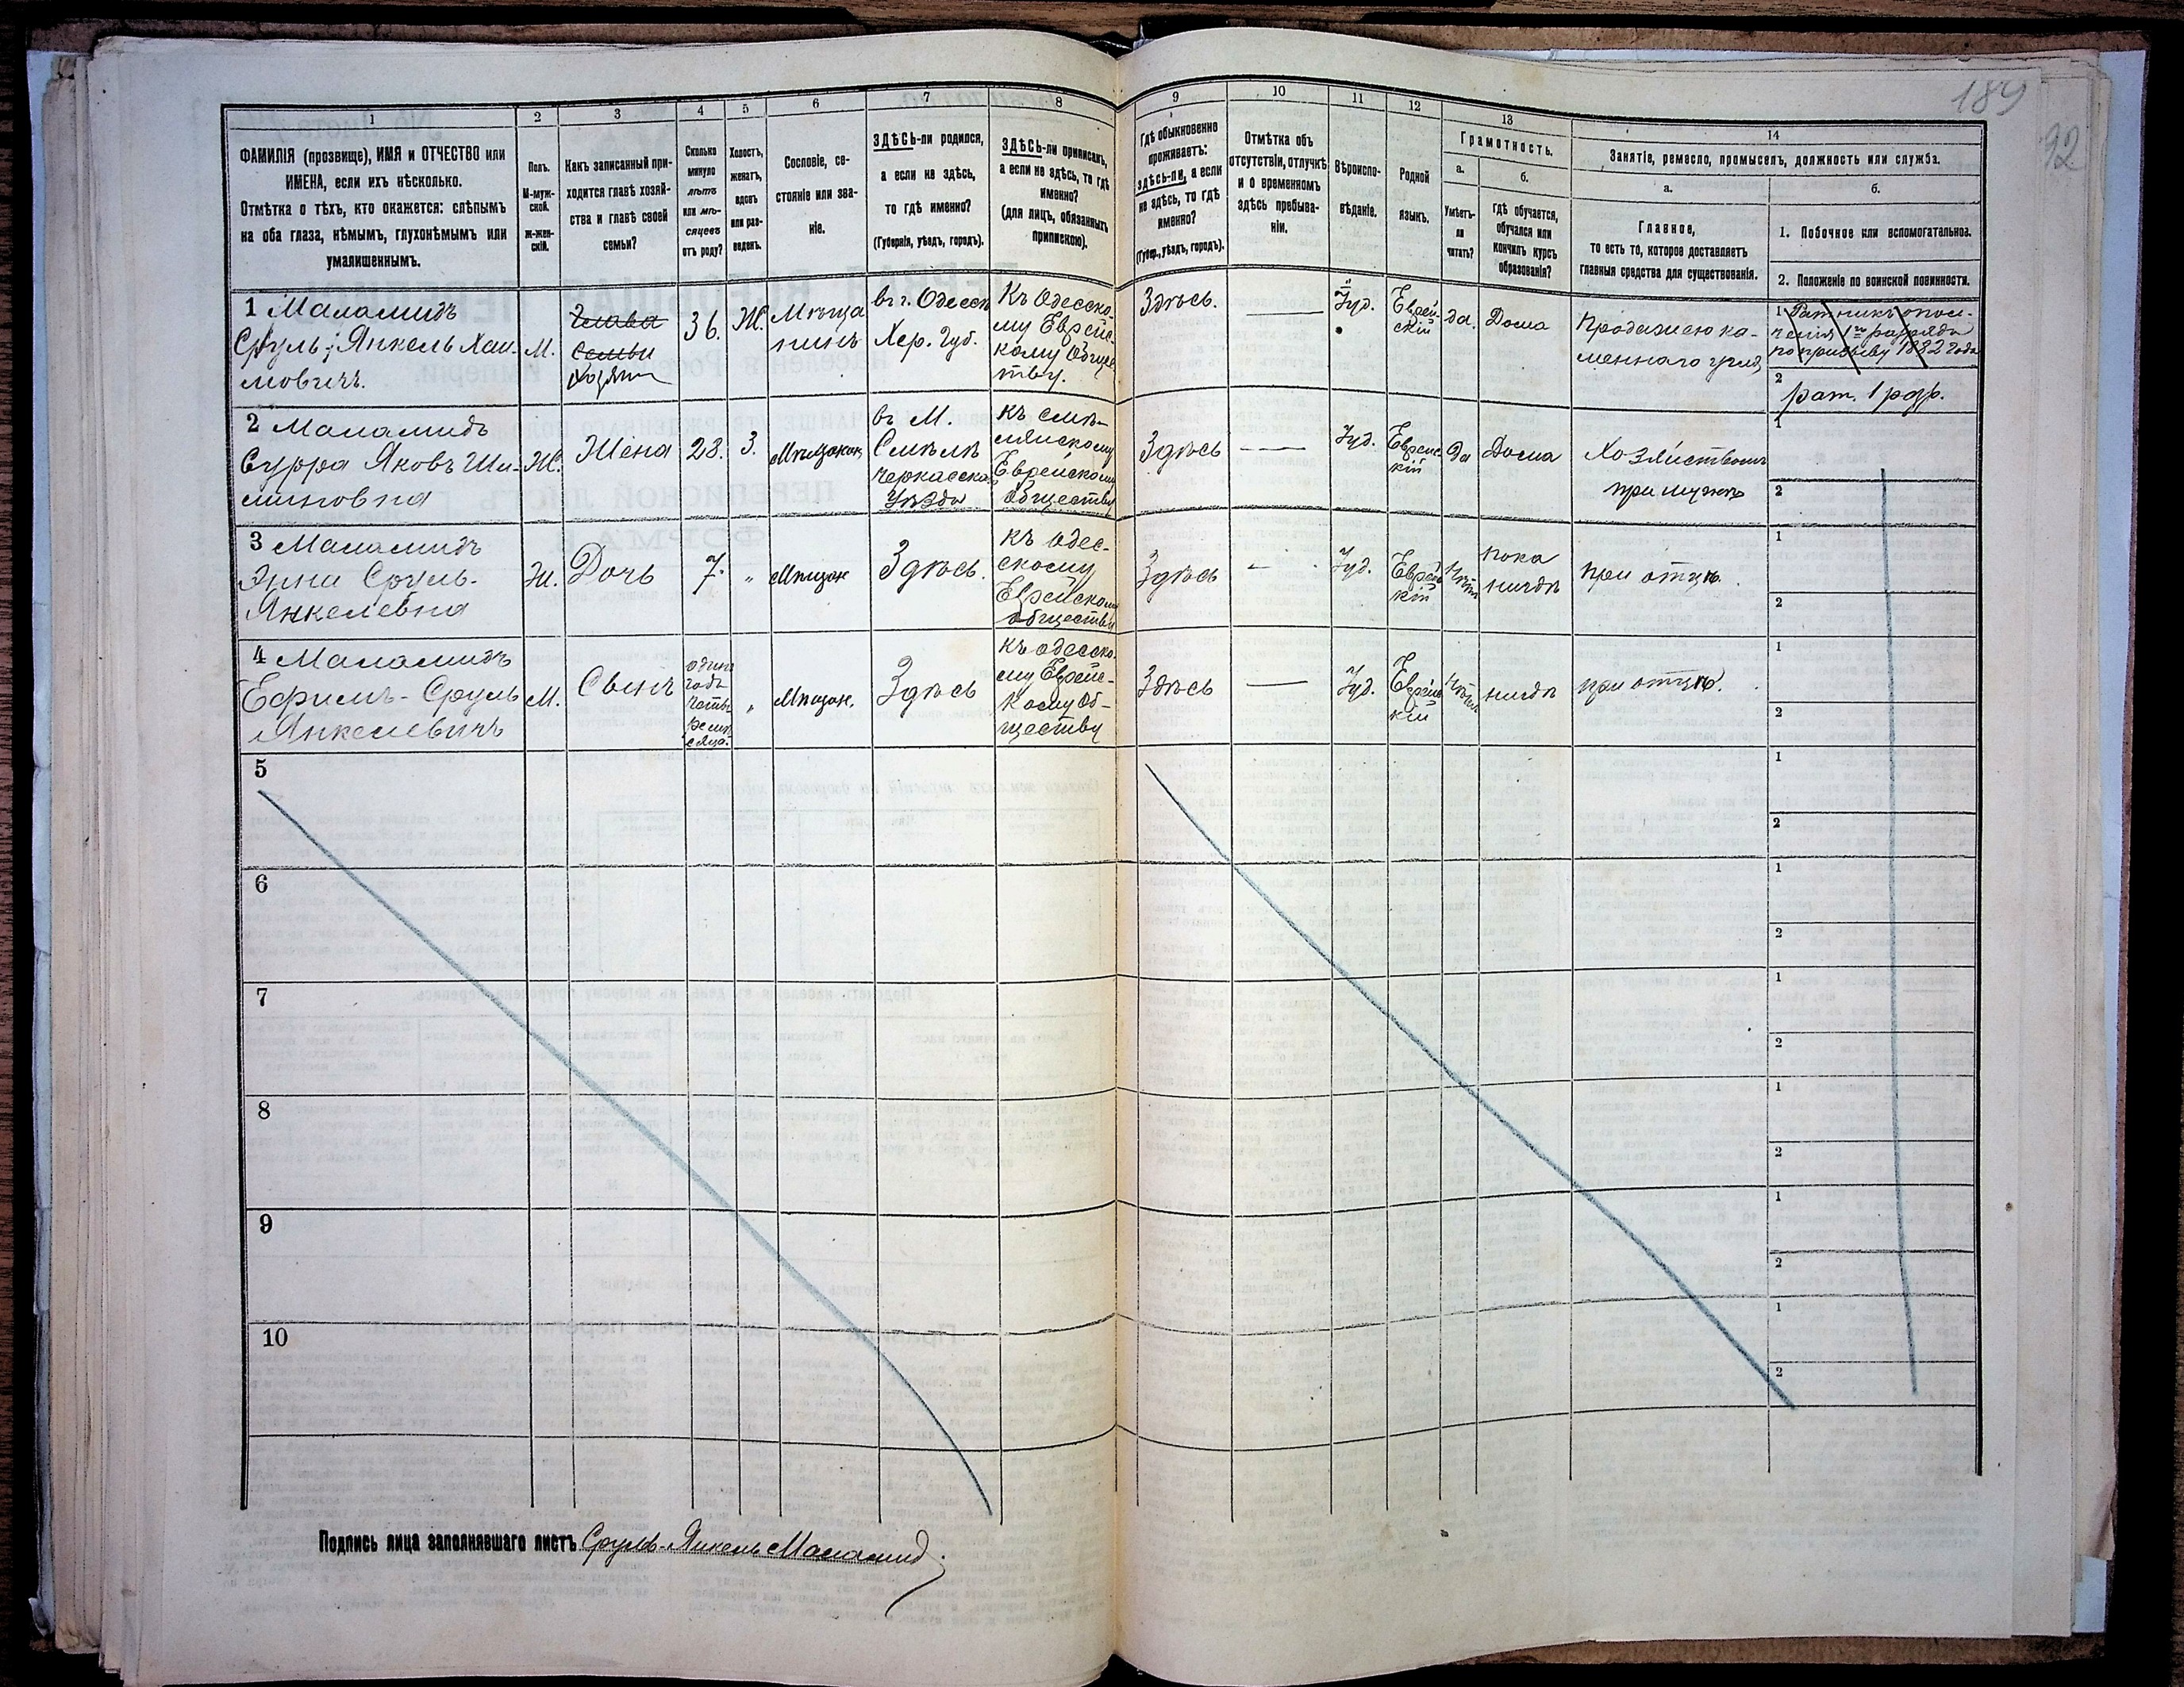 189
92
1
2
3
4
5
6
7
8
9
10
11
12
13
14
ФАМИЛІЯ (прозвище), ИМЯ и ОТЧЕСТВО или
ИМЕНА, если ихъ нѣсколько.
Отмѣтка о тѣхъ, кто окажется: слѣпымъ
на оба глаза, нѣмымъ, глухонѣмымъ или
умалишеннымъ.
Полъ.
М-муж-
ской.
Ж-жен-
скій.
Какъ записанный при-
ходится главѣ хозяй-
ства и главѣ своей
семьи?
Сколько
минуло
лѣтъ
или мѣ-
сяцевъ
отъ роду?
Холостъ,
женатъ,
вдовъ
или раз-
веденъ.
Сословіе, со-
стояніе или зва-
ніе.
ЗДѢСЬ-ли родился,
а если не здѣсь,
то гдѣ именно?
(Губернія, уѣздъ, городъ).
ЗДѢСЬ-ли приписанъ,
а если не здѣсь, то гдѣ
именно?
(для лицъ, обязанныхъ
припискою).
Гдѣ обыкновенно
проживаетъ:
здѣсь-ли, а если
не здѣсь, то гдѣ
именно?
(Губер., уѣздъ, городъ).
Отмѣтка объ
отсутствіи, отлучкѣ
и о временномъ
здѣсь пребыва-
ніи.
Вѣроиспо-
вѣданіе.
Родной
языкъ.
Грамотность.
а.
Умѣетъ-
ли
читать?
б.
Гдѣ обучается,
обучался или
кончилъ курсъ
образованія?
Занятіе, ремесло, промыселъ, должность или служба.
а.
Главное,
то есть то, которое доставляетъ
главныя средства для существованія.
б.
1. Побочное или вспомогательное.
2. Положеніе по воинской повинности.
1 Маламидъ
Сруль-Янкель Хаи-
мовичъ.
М.
Глава
Семьи
Хозяинъ
36.
Ж.
Мѣща
нинъ
въ г. Одессѣ
Хер. Губ.
Къ Одесско-
му Еврейс-
кому Общес
тву.
Здѣсь.
Іуд.
Еврей-
скій
да.
Дома
Продажею ка-
меннаго угля
1 Ратникъ опол-
ченія 1го разряда
по призыву 1882 года
2
рат. 1 разр.
2 Маламидъ
Сурра Яковъ Шли-
миновна
Ж.
Жена
28.
З.
Мѣщанка
въ М.
Смѣлѣ
Черкасска
Уѣзда
Къ смѣ-
лянскому
Еврейскому
обществу
Здѣсь
Іуд.
Еврейс
кій
Да
Дома
Хозяйствомъ
при мужѣ
1
2
3 Маламидъ
Энни Сруль-
Янкелевна
Ж.
Дочь
7.
"
Мѣщан
Здѣсь.
Къ одес-
скому
Еврейскому
обществу
Здѣсь
Іуд.
Еврейс
кій
Нѣтъ
Пока
нигдѣ
при отцѣ.
1
2
4 Маламидъ
Ефимъ-Сруль
Янкелевичъ
М.
Сынъ
одинъ
годъ
четы
ре мѣ
сяца.
"
Мѣщан.
Здѣсь
Къ одесско-
му Еврейс-
кому Об-
ществу
Здѣсь
Іуд.
Еврейс
кій
Нѣтъ
нигдѣ
при отцѣ.
1
2
5
1
2
6
1
2
7
1
2
8
1
2
9
1
2
10
1
2
Подпись лица заполнявшаго листъ Сруль-Янкель Маламид